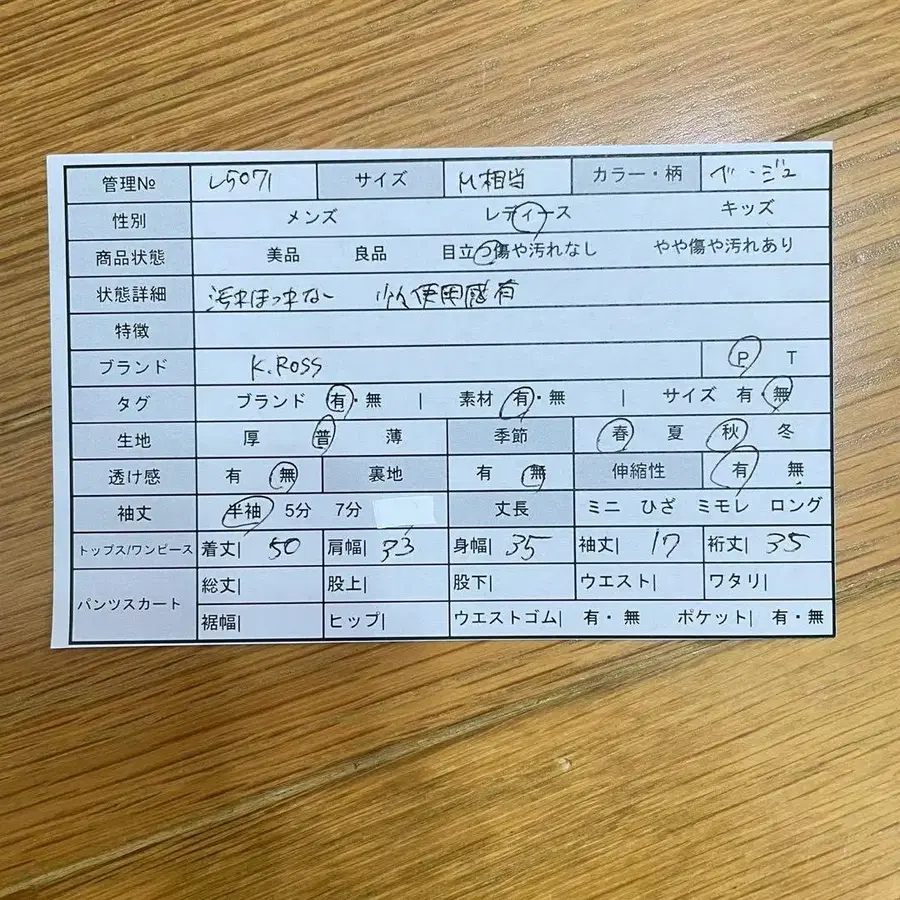 管理№ L5071 サイズ M相当 カラー・柄 ベージュ
性別 メンズ レディース キッズ
商品状態 美品 良品 目立つ傷や汚れなし やや傷や汚れあり
状態詳細 汚れほつれなし 少々使用感有
特徴
ブランド K.ROSS P T
タグ ブランド 有・無 | 素材 有・無 | サイズ 有 無
生地 厚 普 薄 季節 春 夏 秋 冬
透け感 有 無 裏地 有 無 伸縮性 有 無
袖丈 半袖 5分 7分 丈長 ミニ ひざ ミモレ ロング
トップス/ワンピース 着丈| 50 肩幅| 33 身幅| 35 袖丈| 17 裄丈| 35
パンツスカート 総丈| 股上| 股下| ウエスト| ワタリ|
裾幅| ヒップ| ウエストゴム| 有・無 ポケット| 有・無